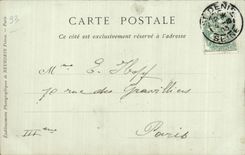 93
CARTE POSTALE
Ce côté est exclusivement réservé à l'adresse
ST DENIS
SEINE
Mme E. Hoff
70 rue des Gravilliers
IIIème
Paris
Etablissements Photographiques de NEURDEIN Frères. - Paris